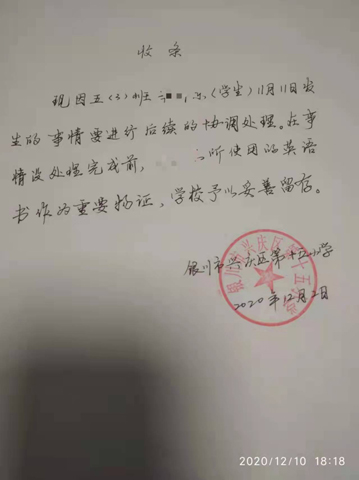 收条
现因五(3)班(学生)11月11日发
生的事情要进行后续的协调处理。在事
情没处理完成前,所使用的英语
书作为重要物证,学校予以妥善留存。
银川市兴庆区第十五小学
2020年12月2日
2020/12/10 18:18